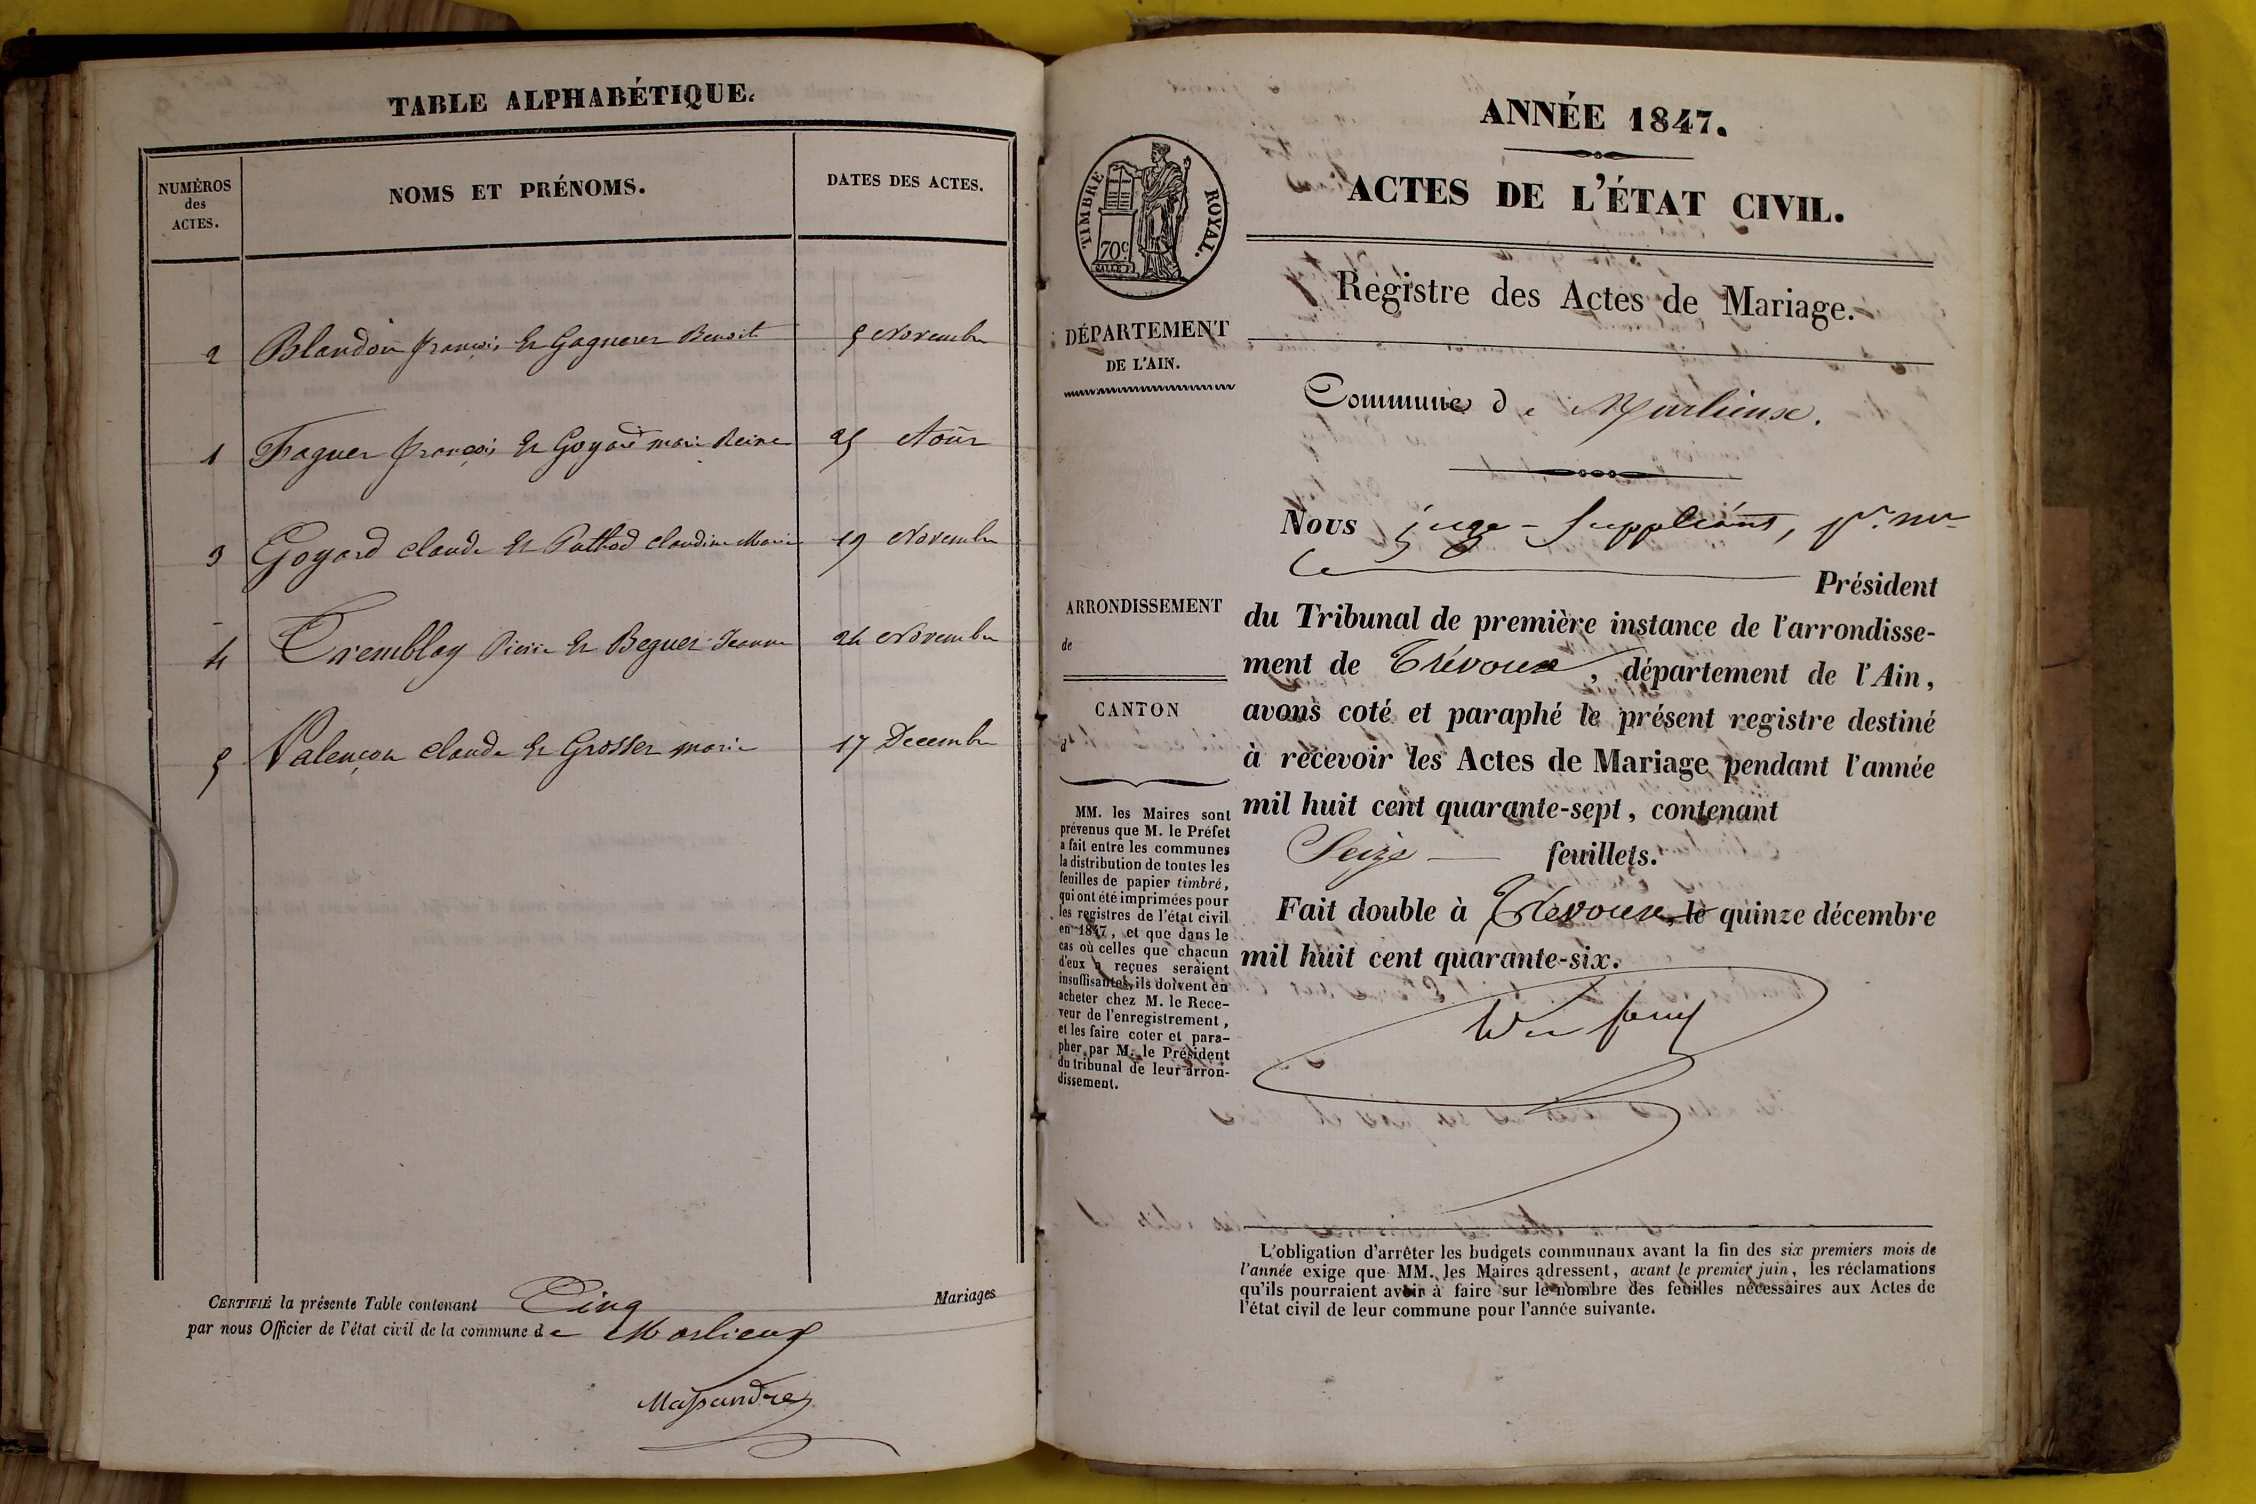 TABLE ALPHABÉTIQUE.
NUMÉROS
des
ACTES.
NOMS ET PRÉNOMS.
DATES DES ACTES.
2 Blandon françois Et Gagneres Benoit 5 Novembre
1 Faguer françois Et Goyard marie Reine 25 Aoûr
3 Goyard claude Et Puthod claudine Marie 19 Novembre
4 Tremblay Pierre Et Beguer Jeanne 24 Novembre
5 Valençon claude Et Grosser marie 17 Decembre
CERTIFIÉ la présente Table contenant Cinq Mariages
par nous Officier de l'état civil de la commune de Marlieux
ANNÉE 1847.
ACTES DE L'ÉTAT CIVIL.
TIMBRE ROYAL.
70c
Registre des Actes de Mariage.
DÉPARTEMENT
DE L'AIN.
Commune de Marlieux.
Nous juge-Suppléant, pr. mr
le Président
ARRONDISSEMENT
de
CANTON
d
du Tribunal de première instance de l'arrondisse-
ment de Trévoux, département de l'Ain,
avons coté et paraphé le présent registre destiné
à recevoir les Actes de Mariage pendant l'année
mil huit cent quarante-sept, contenant
Seize feuillets.
Fait double à Trévoux, le quinze décembre
mil huit cent quarante-six.
MM. les Maires sont
prévenus que M. le Préfet
a fait entre les communes
la distribution de toutes les
feuilles de papier timbré,
qui ont été imprimées pour
les registres de l'état civil
en 1847, et que dans le
cas où celles que chacun
d'eux a reçues seraient
insuffisantes, ils doivent en
acheter chez M. le Rece-
veur de l'enregistrement,
et les faire coter et para-
pher par M. le Président
du tribunal de leur arron-
dissement.
L'obligation d'arrêter les budgets communaux avant la fin des six premiers mois de
l'année exige que MM. les Maires adressent, avant le premier juin, les réclamations
qu'ils pourraient avoir à faire sur le nombre des feuilles nécessaires aux Actes de
l'état civil de leur commune pour l'année suivante.